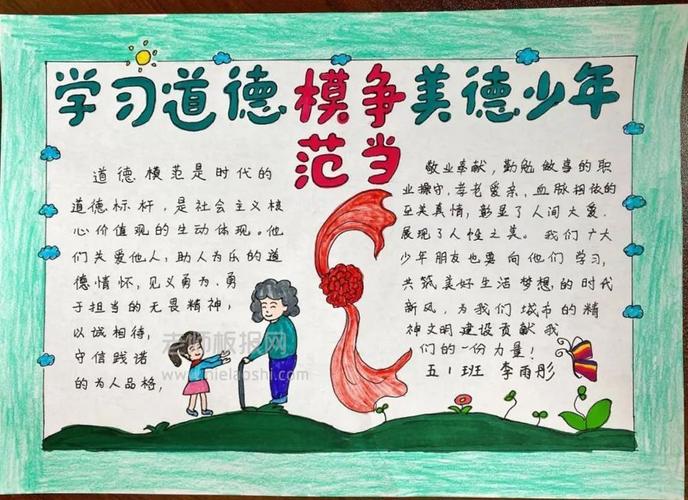 学习道德模争美德少年
范当
道德模范是时代的
道德标杆，是社会主义核
心价值观的生动体现。他
们关爱他人，助人为乐的道
德情怀，见义勇为、勇
于担当的无畏精神，
以诚相待，
守信践诺
的为人品格，
敬业奉献，勤勉做事的职
业操守，孝老爱亲，血脉相依的
至美真情，彰显了人间大爱，
展现了人性之美。我们广大
少年朋友也要向他们学习，
共筑美好生活梦想的时代
新风，为我们城市的精
神文明建设贡献我
们的一份力量！
五1班 李雨彤
老师板报网
www.nielaoshi.com